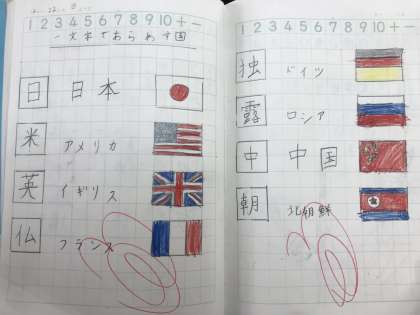 1 2 3 4 5 6 7 8 9 10 + −
一文字であらわす国
日 日本
米 アメリカ
英 イギリス
仏 フランス
1 2 3 4 5 6 7 8 9 10 + −
独 ドイツ
露 ロシア
中 中国
朝 北朝鮮